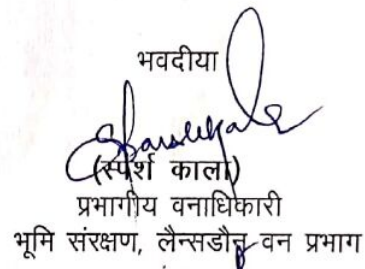 भवदीया
(स्पर्श काला)
प्रभागीय वनाधिकारी
भूमि संरक्षण, लैन्सडौन वन प्रभाग